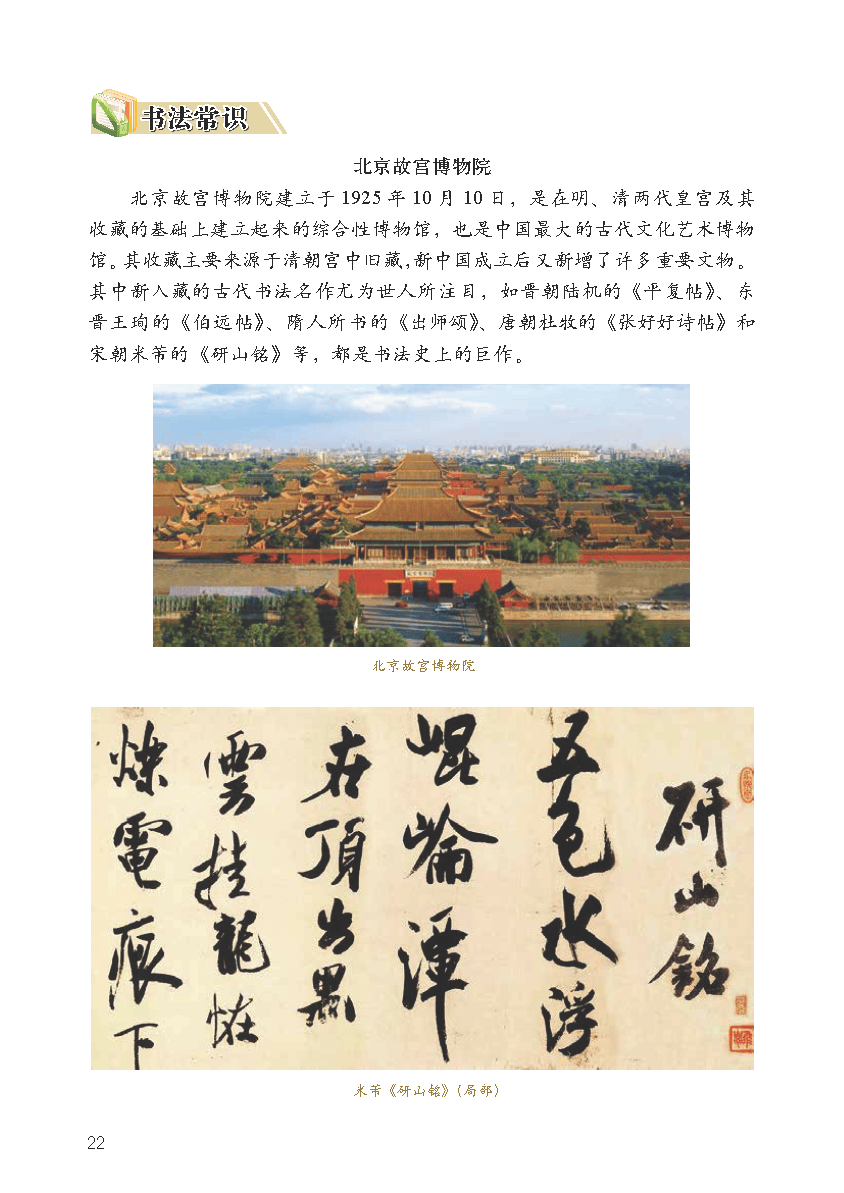 书法常识
北京故宫博物院
北京故宫博物院建立于 1925 年 10 月 10 日，是在明、清两代皇宫及其
收藏的基础上建立起来的综合性博物馆，也是中国最大的古代文化艺术博物
馆。其收藏主要来源于清朝宫中旧藏，新中国成立后又新增了许多重要文物。
其中新入藏的古代书法名作尤为世人所注目，如晋朝陆机的《平复帖》、东
晋王珣的《伯远帖》、隋人所书的《出师颂》、唐朝杜牧的《张好好诗帖》和
宋朝米芾的《研山铭》等，都是书法史上的巨作。
北京故宫博物院
研山銘
五色水浮
崐崘潭
在頂出黑
雲挂龍恠
爍電痕下
米芾《研山铭》（局部）
22